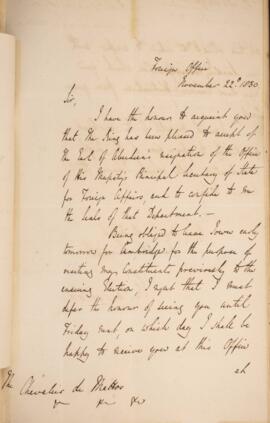 Foreign Office
November 22d 1830
Sir,
I have the honour to acquaint you
that The King has been pleased to accept of
the Earl of Aberdeen's resignation of the Office
of His Majesty's Principal Secretary of State
for Foreign Affairs, and to confide to me
the Seals of that Department.—
Being obliged to leave Town early
tomorrow for Cambridge for the purpose of
meeting my Constituents previously to the
ensuing Election, I regret that I must
defer the honour of seeing you until
Friday next, on which day I shall be
happy to receive you at this Office
at
The Chevalier de Mattos
&c &c &c